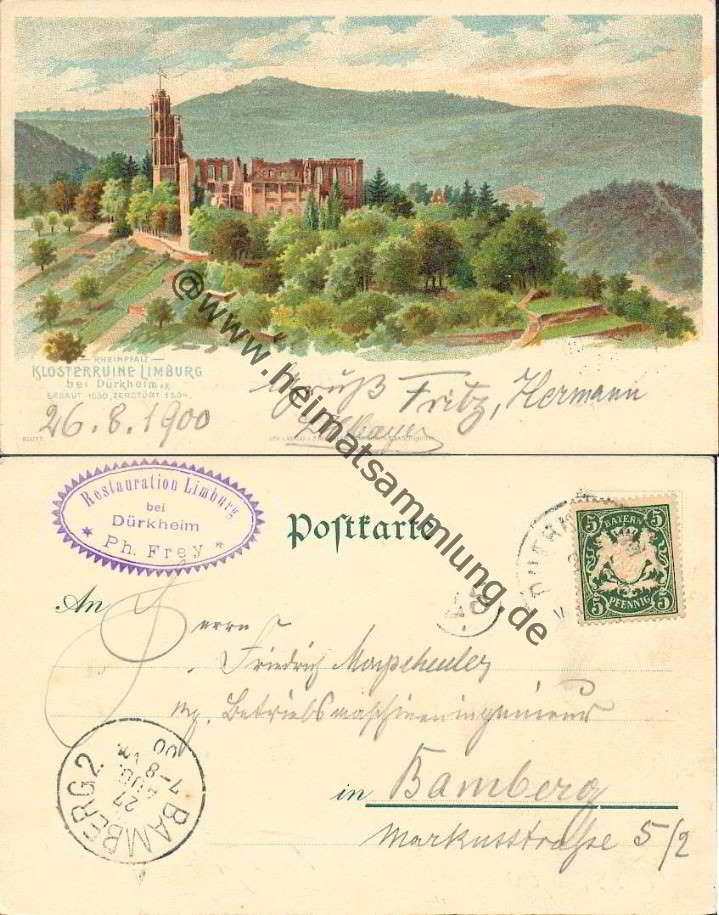 RHEINPFALZ
KLOSTERRUINE LIMBURG
bei Dürkheim a.H.
ERBAUT 1030, ZERSTÖRT 1504.
26.8.1900
Gruß Fritz, Hermann
@www.heimatsammlung.de
Restauration Limburg
bei
Dürkheim
* Ph. Frey *
Postkarte
5 BAYERN 5
5 PFENNIG 5
An Herrn
Friedrich
Betriebsmaschineningenieur
in Bamberg
Markusstraße 5/2
BAMBERG 2
27
AUG.
7-8 V.
00